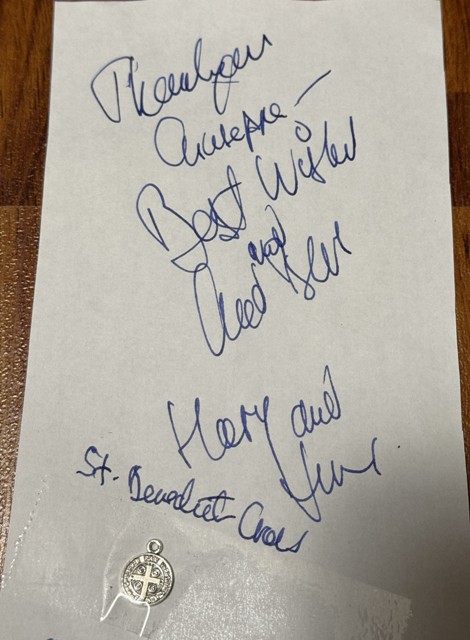 Thankyou
Giuseppe -
Best Wishes
and
God Bless
Mary and
St. Benedict Cross